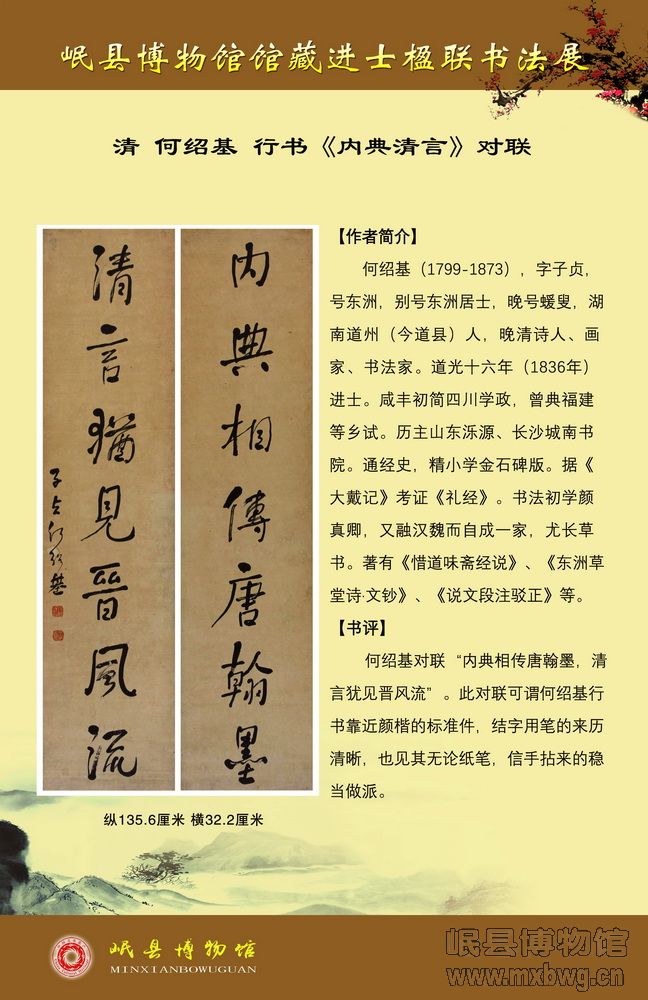 岷县博物馆馆藏进士楹联书法展
清 何绍基 行书《内典清言》对联
内典相傳唐翰墨
清言猶見晉風流
子貞何紹基
【作者简介】
何绍基（1799-1873），字子贞，
号东洲，别号东洲居士，晚号蝯叟，湖
南道州（今道县）人，晚清诗人、画
家、书法家。道光十六年（1836年）
进士。咸丰初简四川学政，曾典福建
等乡试。历主山东泺源、长沙城南书
院。通经史，精小学金石碑版。据《
大戴记》考证《礼经》。书法初学颜
真卿，又融汉魏而自成一家，尤长草
书。著有《惜道味斋经说》、《东洲草
堂诗·文钞》、《说文段注驳正》等。
【书评】
何绍基对联“内典相传唐翰墨，清
言犹见晋风流”。此对联可谓何绍基行
书靠近颜楷的标准件，结字用笔的来历
清晰，也见其无论纸笔，信手拈来的稳
当做派。
纵135.6厘米 横32.2厘米
岷县博物馆
MINXIANBOWUGUAN
岷县博物馆
www.mxbwg.cn